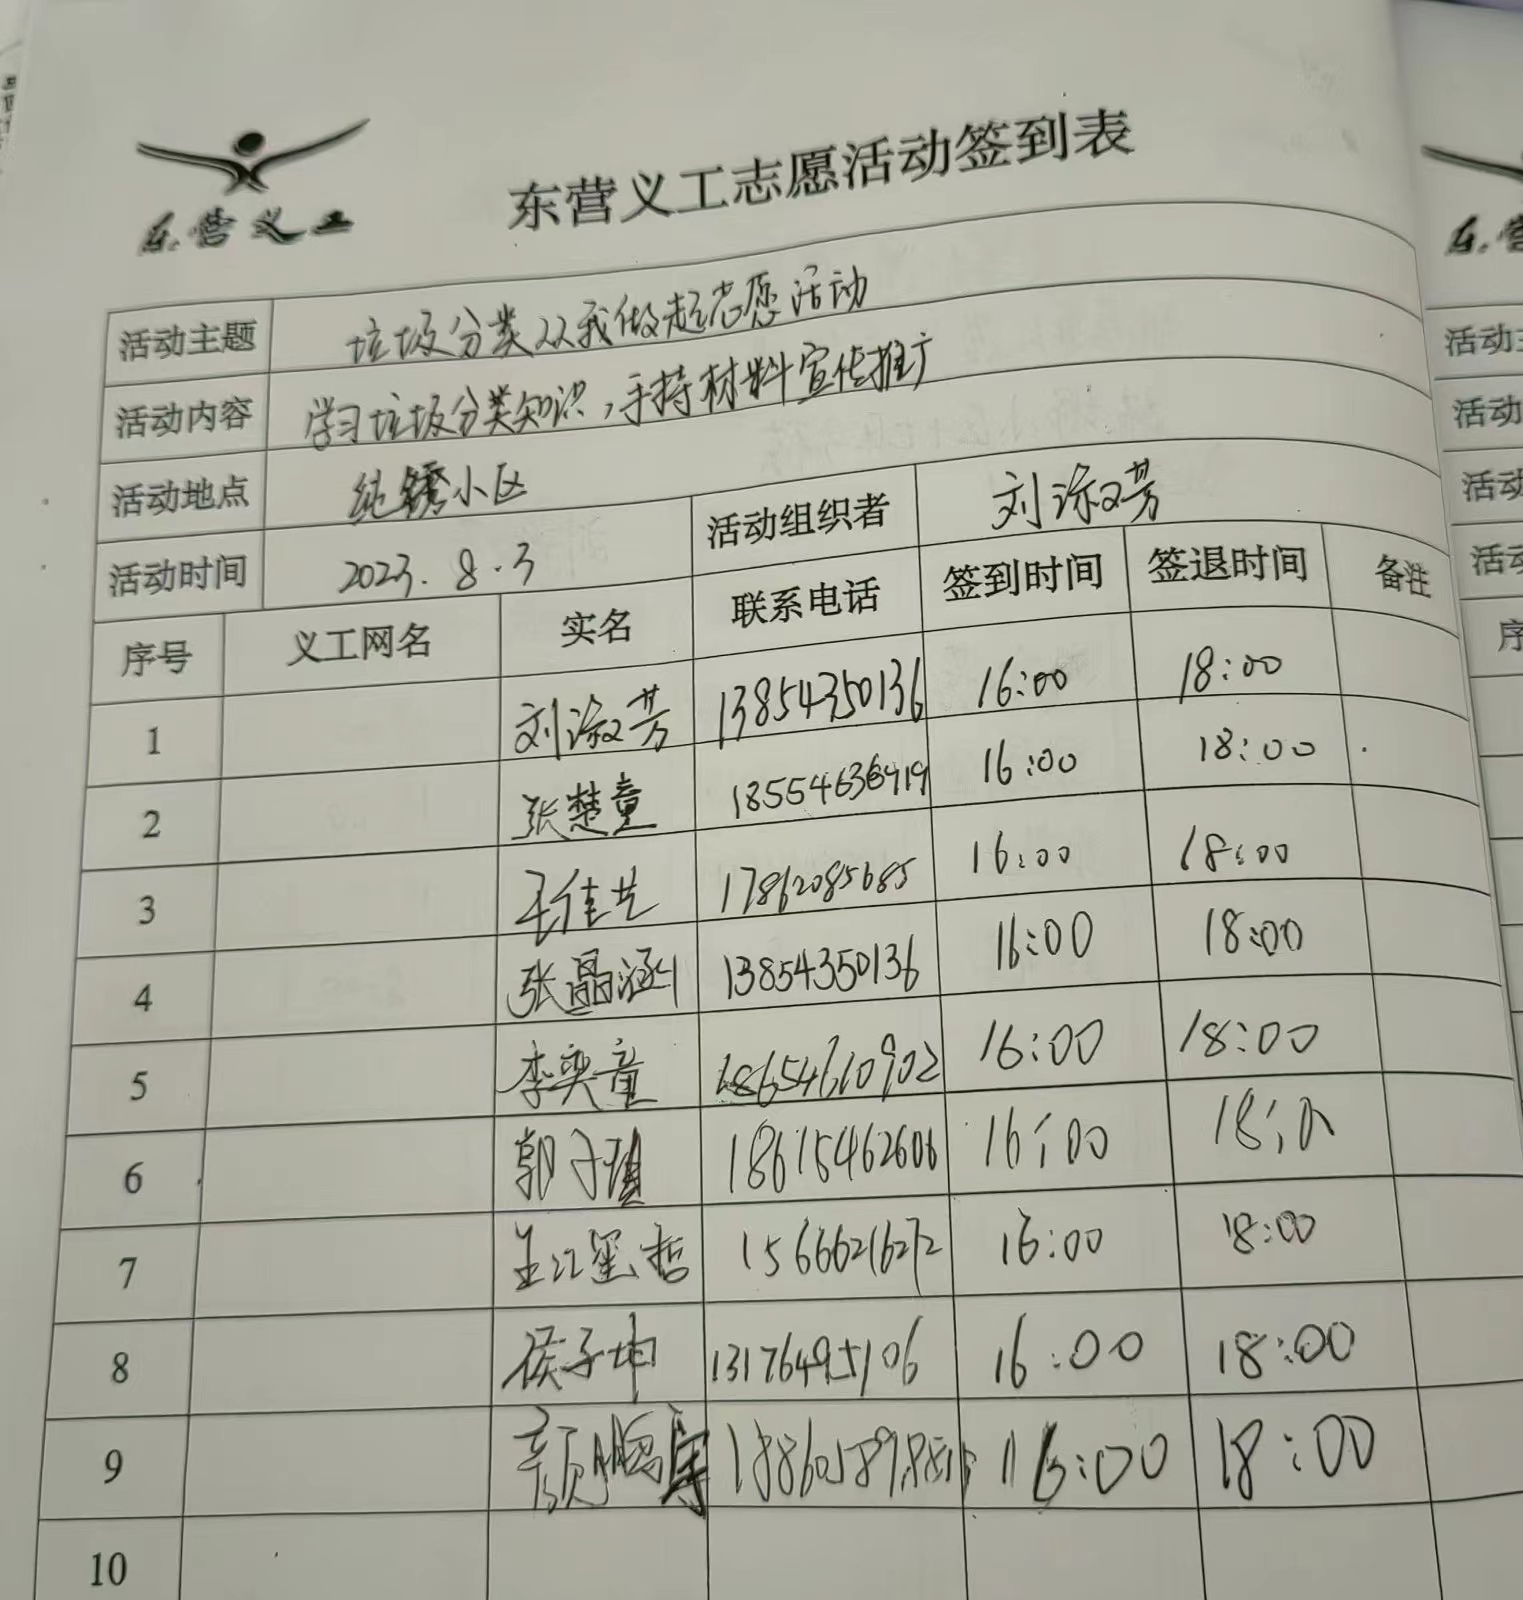 东营义工
东营义工志愿活动签到表
活动主题 垃圾分类从我做起志愿活动
活动内容 学习垃圾分类知识,手持材料宣传推广
活动地点 纯锈小区 活动组织者 刘淑芳
活动时间 2023.8.3
序号 义工网名 实名 联系电话 签到时间 签退时间 备注
1 刘淑芳 13854350136 16:00 18:00
2 张楚童 18554636919 16:00 18:00
3 王佳艺 17862085685 16:00 18:00
4 张晶涵 13854350136 16:00 18:00
5 李奕童 18654610902 16:00 18:00
6 郭子琪 18615462606 16:00 18:00
7 王江星哲 15666216272 16:00 18:00
8 侯子坤 13176495106 16:00 18:00
9 颜鹏 16:00 18:00
10
东营
活动主
活动
活动
活动
序